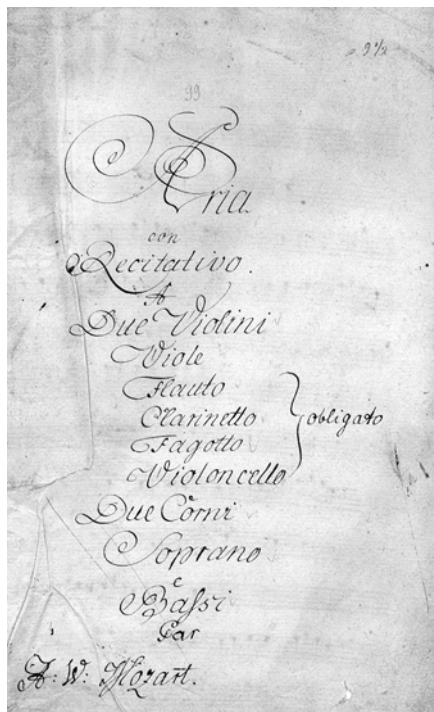 9 1/2
99
Aria
con
Recitativo.
A
Due Violini
Viole
Flauto
Clarinetto
Fagotto
obligato
Violoncello
Due Corni
Soprano
e
Baſsi
Par
A: W: Mozart.